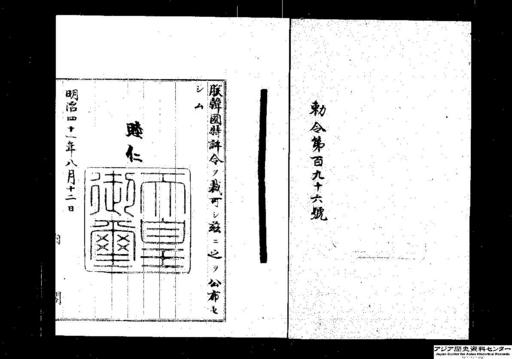 勅令第百九十六號
朕韓國特許令ヲ裁可シ茲ニ之ヲ公布セ
シム
睦仁
天皇御璽
明治四十一年八月十二日
内閣
アジア歴史資料センター
Japan Center for Asian Historical Records